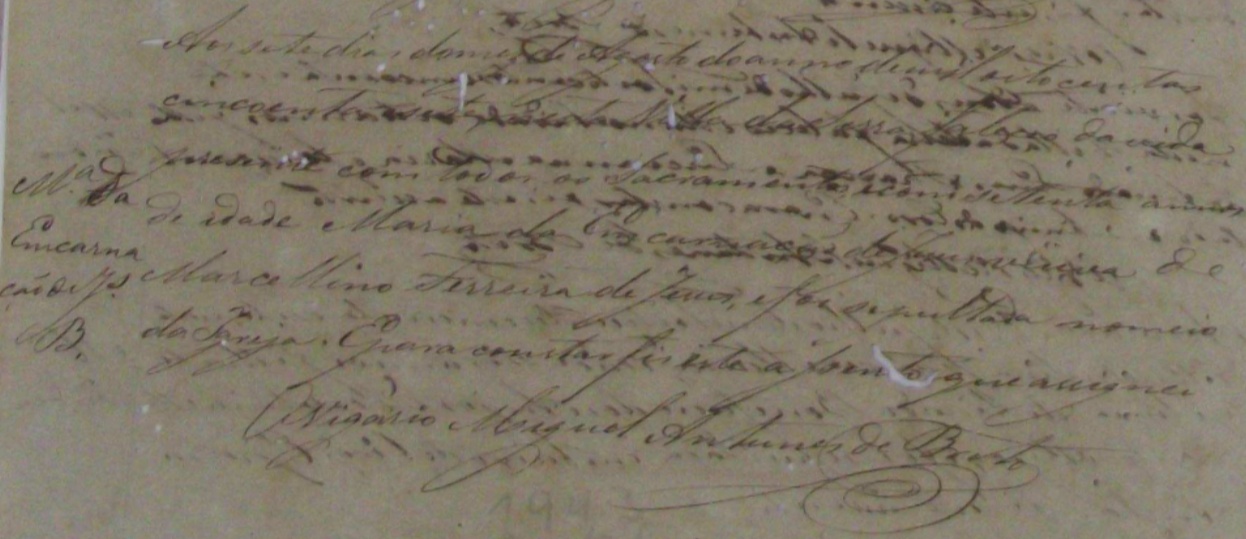 Aos sete dias do mez de Agosto do anno de mil oito centos
cincoenta e sete nesta Villa da vida
presente com todos os Sacramentos, e com setenta annos
de idade Maria da Encarnação de
Marcellino Ferreira de Jesus, e foi sepultada no meio
da Igreja. E para constar fiz este assento que assignei
O Vigario Miguel Antunes de Brito
M.ª da
Encarna
ção de Js.
B.